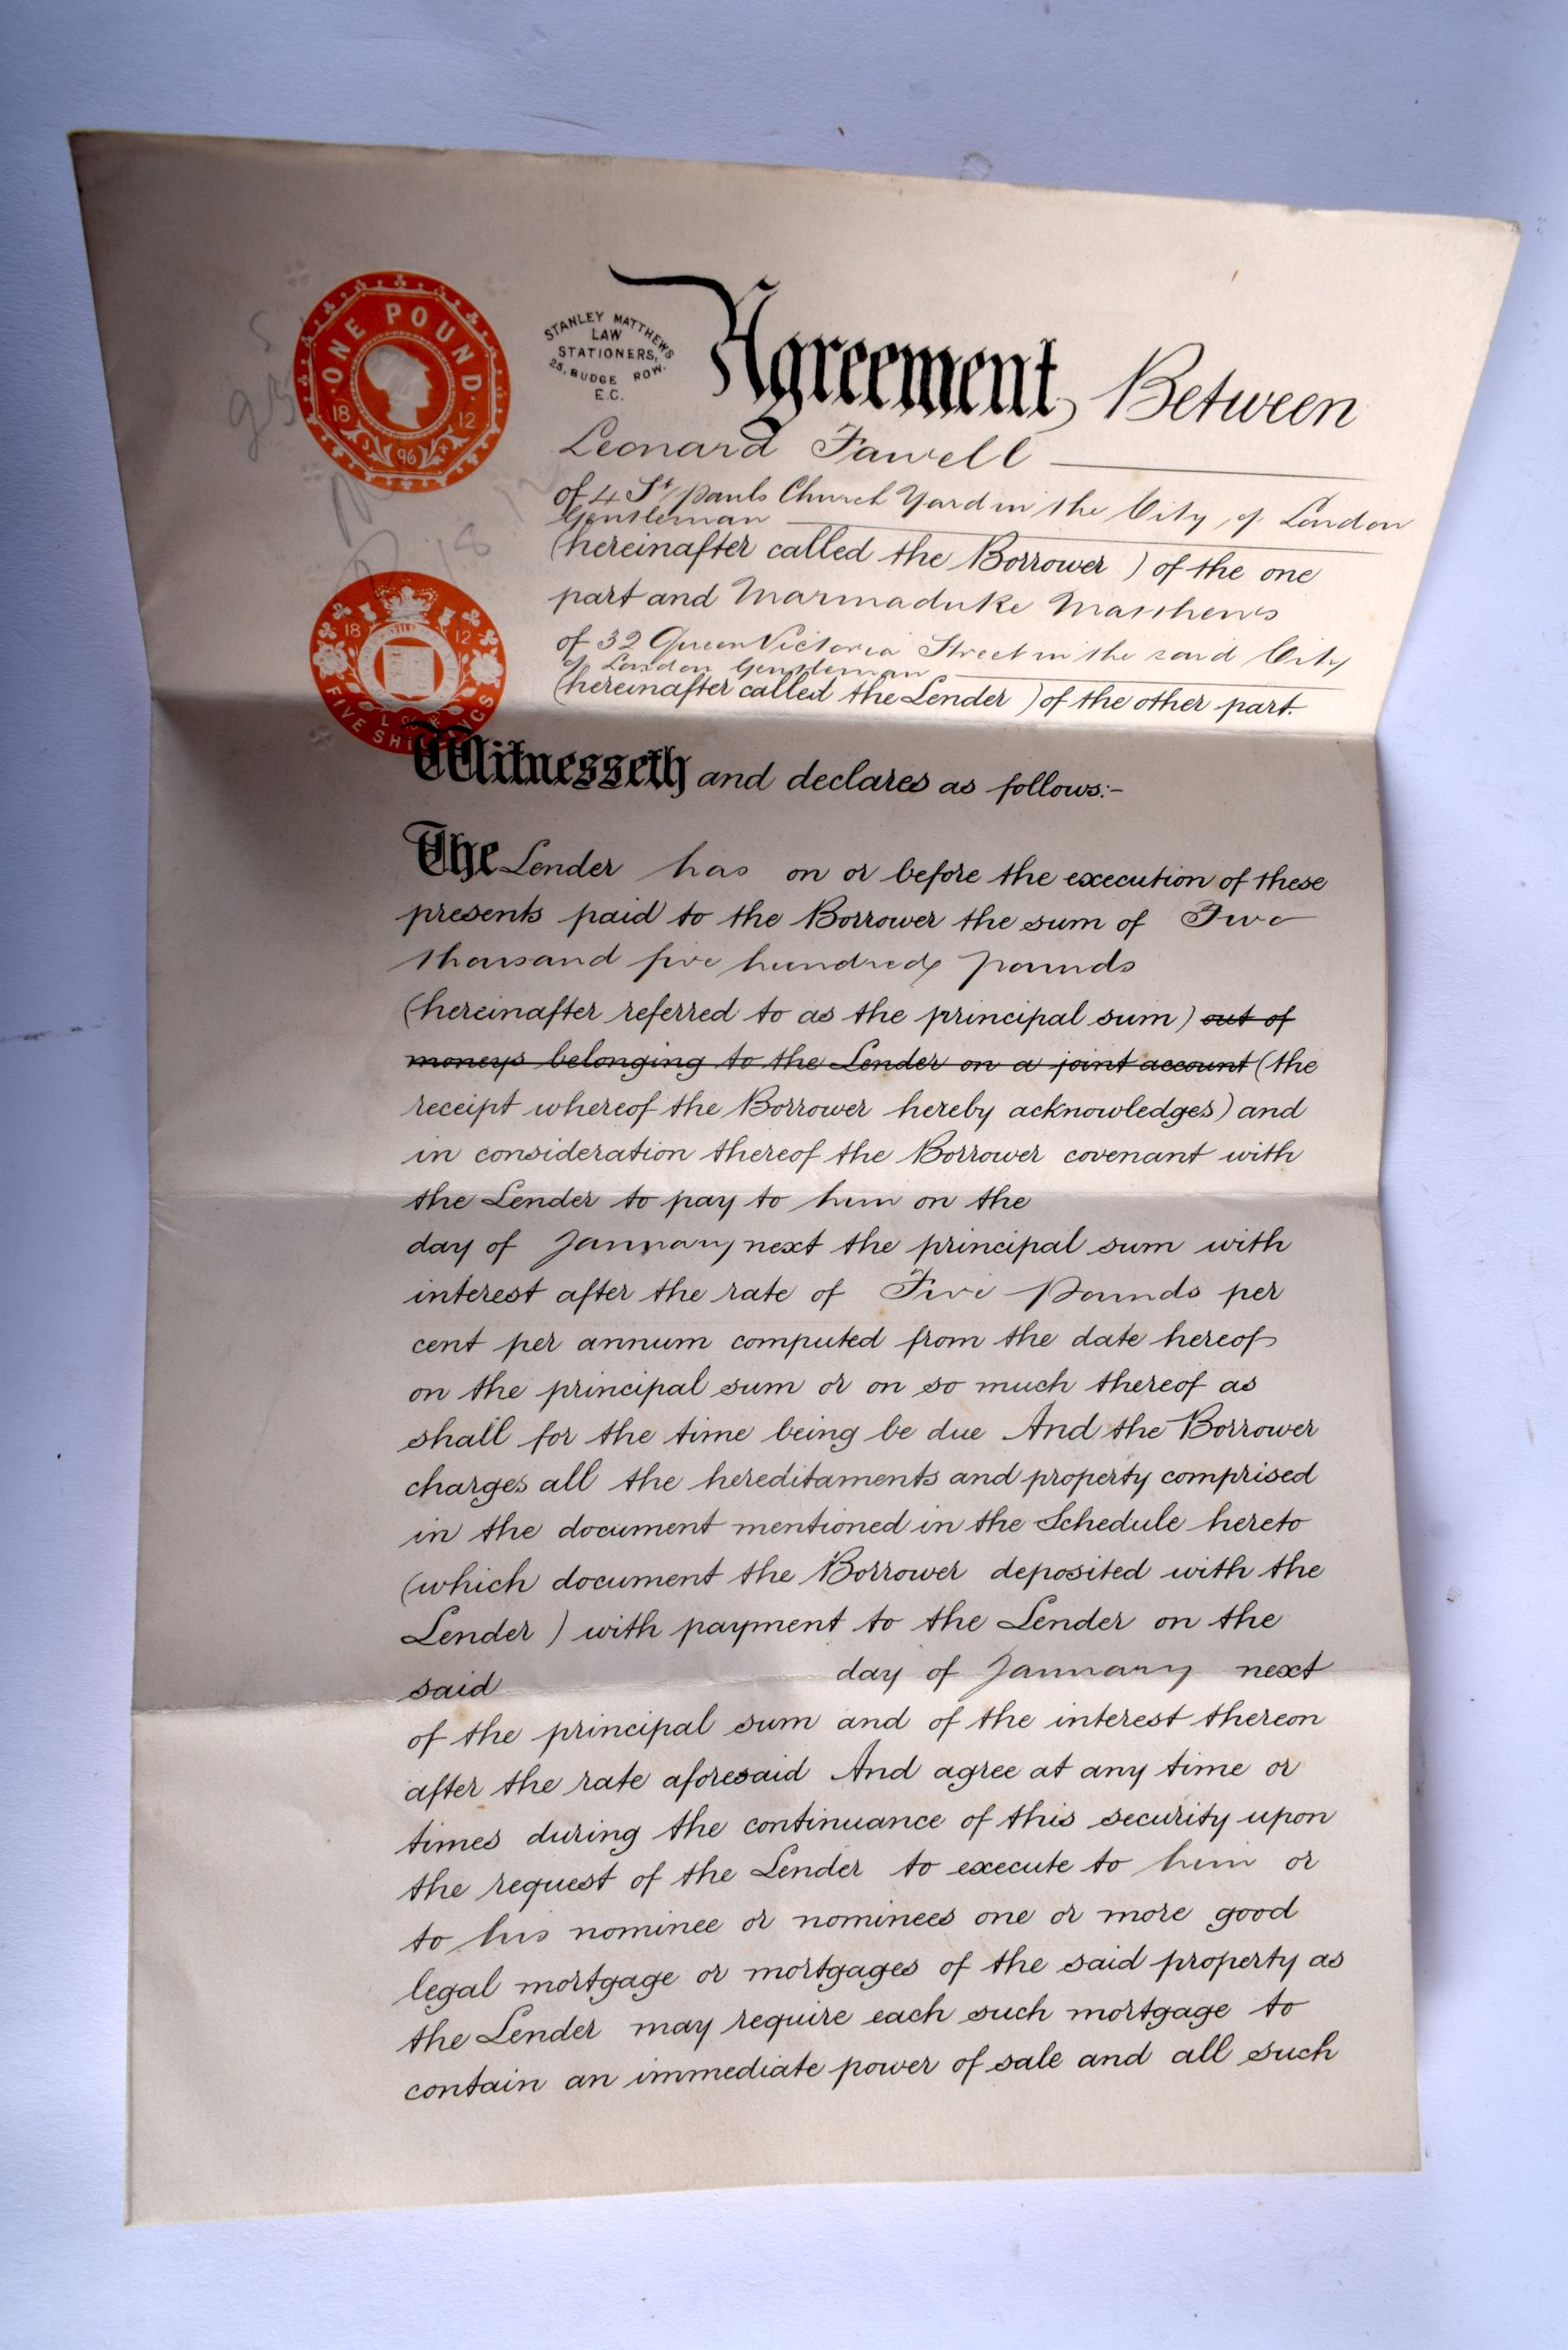 ONE POUND
18 12
96
STANLEY MATTHEWS
LAW
STATIONERS,
25, BUDGE ROW.
E.C.
Agreement Between
Leonard Fawell
of 4 St. Pauls Church Yard in the City of London
Gentleman
(hereinafter called the Borrower) of the one
part and Marmaduke Matthews
of 32 Queen Victoria Street in the said City
of London Gentleman
(hereinafter called the Lender) of the other part.
18 12
FIVE SHILLINGS
Witnesseth and declares as follows:-
The Lender has on or before the execution of these
presents paid to the Borrower the sum of Two
thousand five hundred pounds
(hereinafter referred to as the principal sum) out of
moneys belonging to the Lender on a joint account (the
receipt whereof the Borrower hereby acknowledges) and
in consideration thereof the Borrower covenant with
the Lender to pay to him on the
day of January next the principal sum with
interest after the rate of Five Pounds per
cent per annum computed from the date hereof
on the principal sum or on so much thereof as
shall for the time being be due And the Borrower
charges all the hereditaments and property comprised
in the document mentioned in the Schedule hereto
(which document the Borrower deposited with the
Lender) with payment to the Lender on the
said day of January next
of the principal sum and of the interest thereon
after the rate aforesaid And agree at any time or
times during the continuance of this security upon
the request of the Lender to execute to him or
to his nominee or nominees one or more good
legal mortgage or mortgages of the said property as
the Lender may require each such mortgage to
contain an immediate power of sale and all such